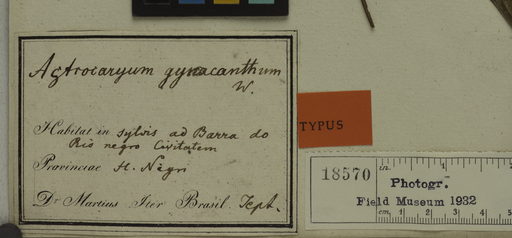 Astrocaryum gynacanthum
W.
Habitat in sylvis ad Barra do
Rio negro Civitatem
Provinciae H. Nègri
Dr Martius Iter Brasil. Sept.
TYPUS
18570
in.
Photogr.
Field Museum 1932
cm. 1 2 3 4 5